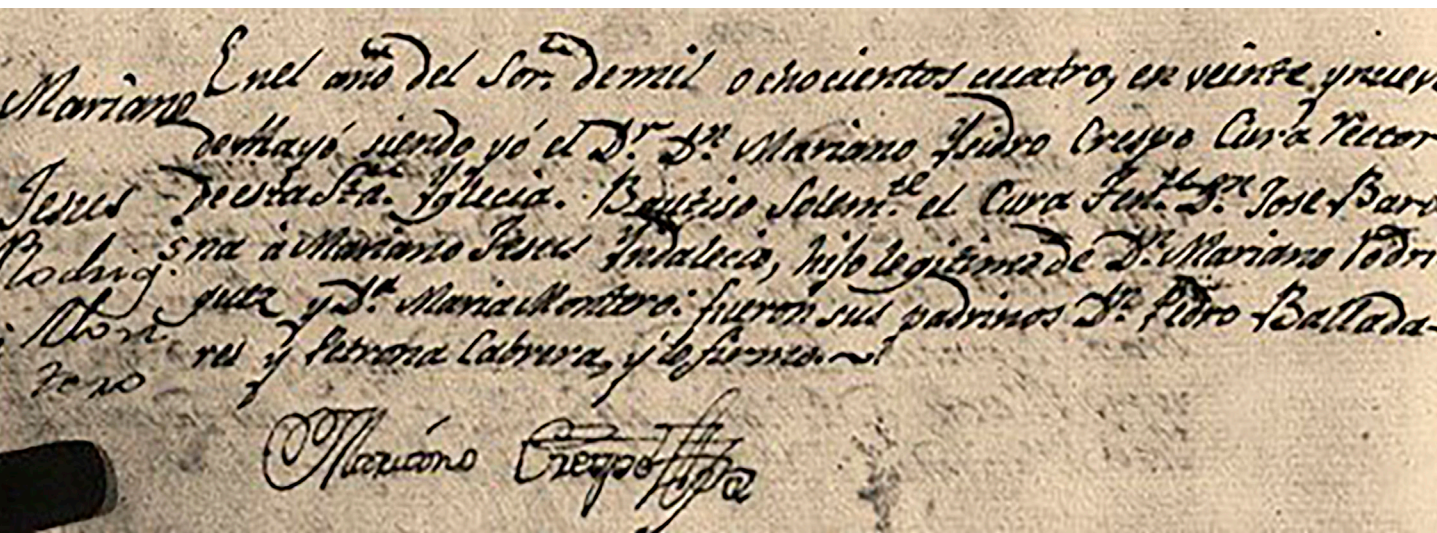 Mariano
Jesus
Rodrig.
Mon
tero
En el año del Sor. de mil ochocientos cuatro, en veinte y nuev
de Mayo siendo yó el Dr. Dn. Mariano Ysidro Crespo Cura Rector
de esta Sta. Yglecia. Bautiso Solemte. el Cura Jose Baro
na á Mariano Jesus Yndalecio, hijo legitimo de Dn. Mariano Rodri
guez y Da. Maria Montero: fueron sus padrinos Dn. Pedro Ballada-
res y Petrona Cabrera, y lo firmo.
Mariano Crespo